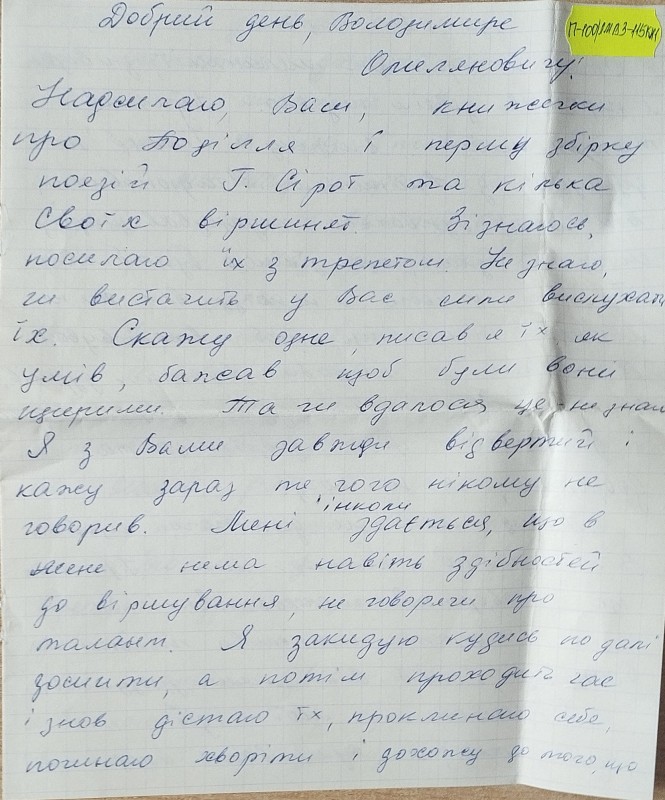 Добрий день, Володимире
Омеляновичу!
Надсилаю, Вам, книжечки
про Поділля і першу збірку
поезій Г. Сірот та кілька
своїх віршинят. Зізнаюсь,
посилаю їх з трепетом. Не знаю,
чи вистачить у Вас сили вислухати
їх. Скажу одне, писав я їх, як
умів, бажав щоб були вони
щирими. Та чи вдалося це, не знаю
Я з Вами завжди відвертий і
кажу зараз те чого нікому не
говорив. Мені інколи здається, що в
мене нема навіть здібностей
до віршування, не говорячи про
талант. Я закидую кудись по далі
зошити, а потім проходить час
і знов дістаю їх, проклинаю себе,
починаю хворіти і дохожу до того, що